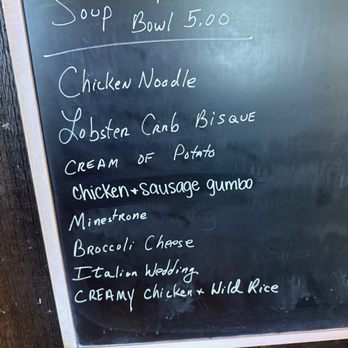 Soup
Bowl 5.00
Chicken Noodle
Lobster Crab Bisque
CREAM OF Potato
chicken + sausage gumbo
Minestrone
Broccoli Cheese
Italian Wedding
CREAMY chicken + Wild Rice